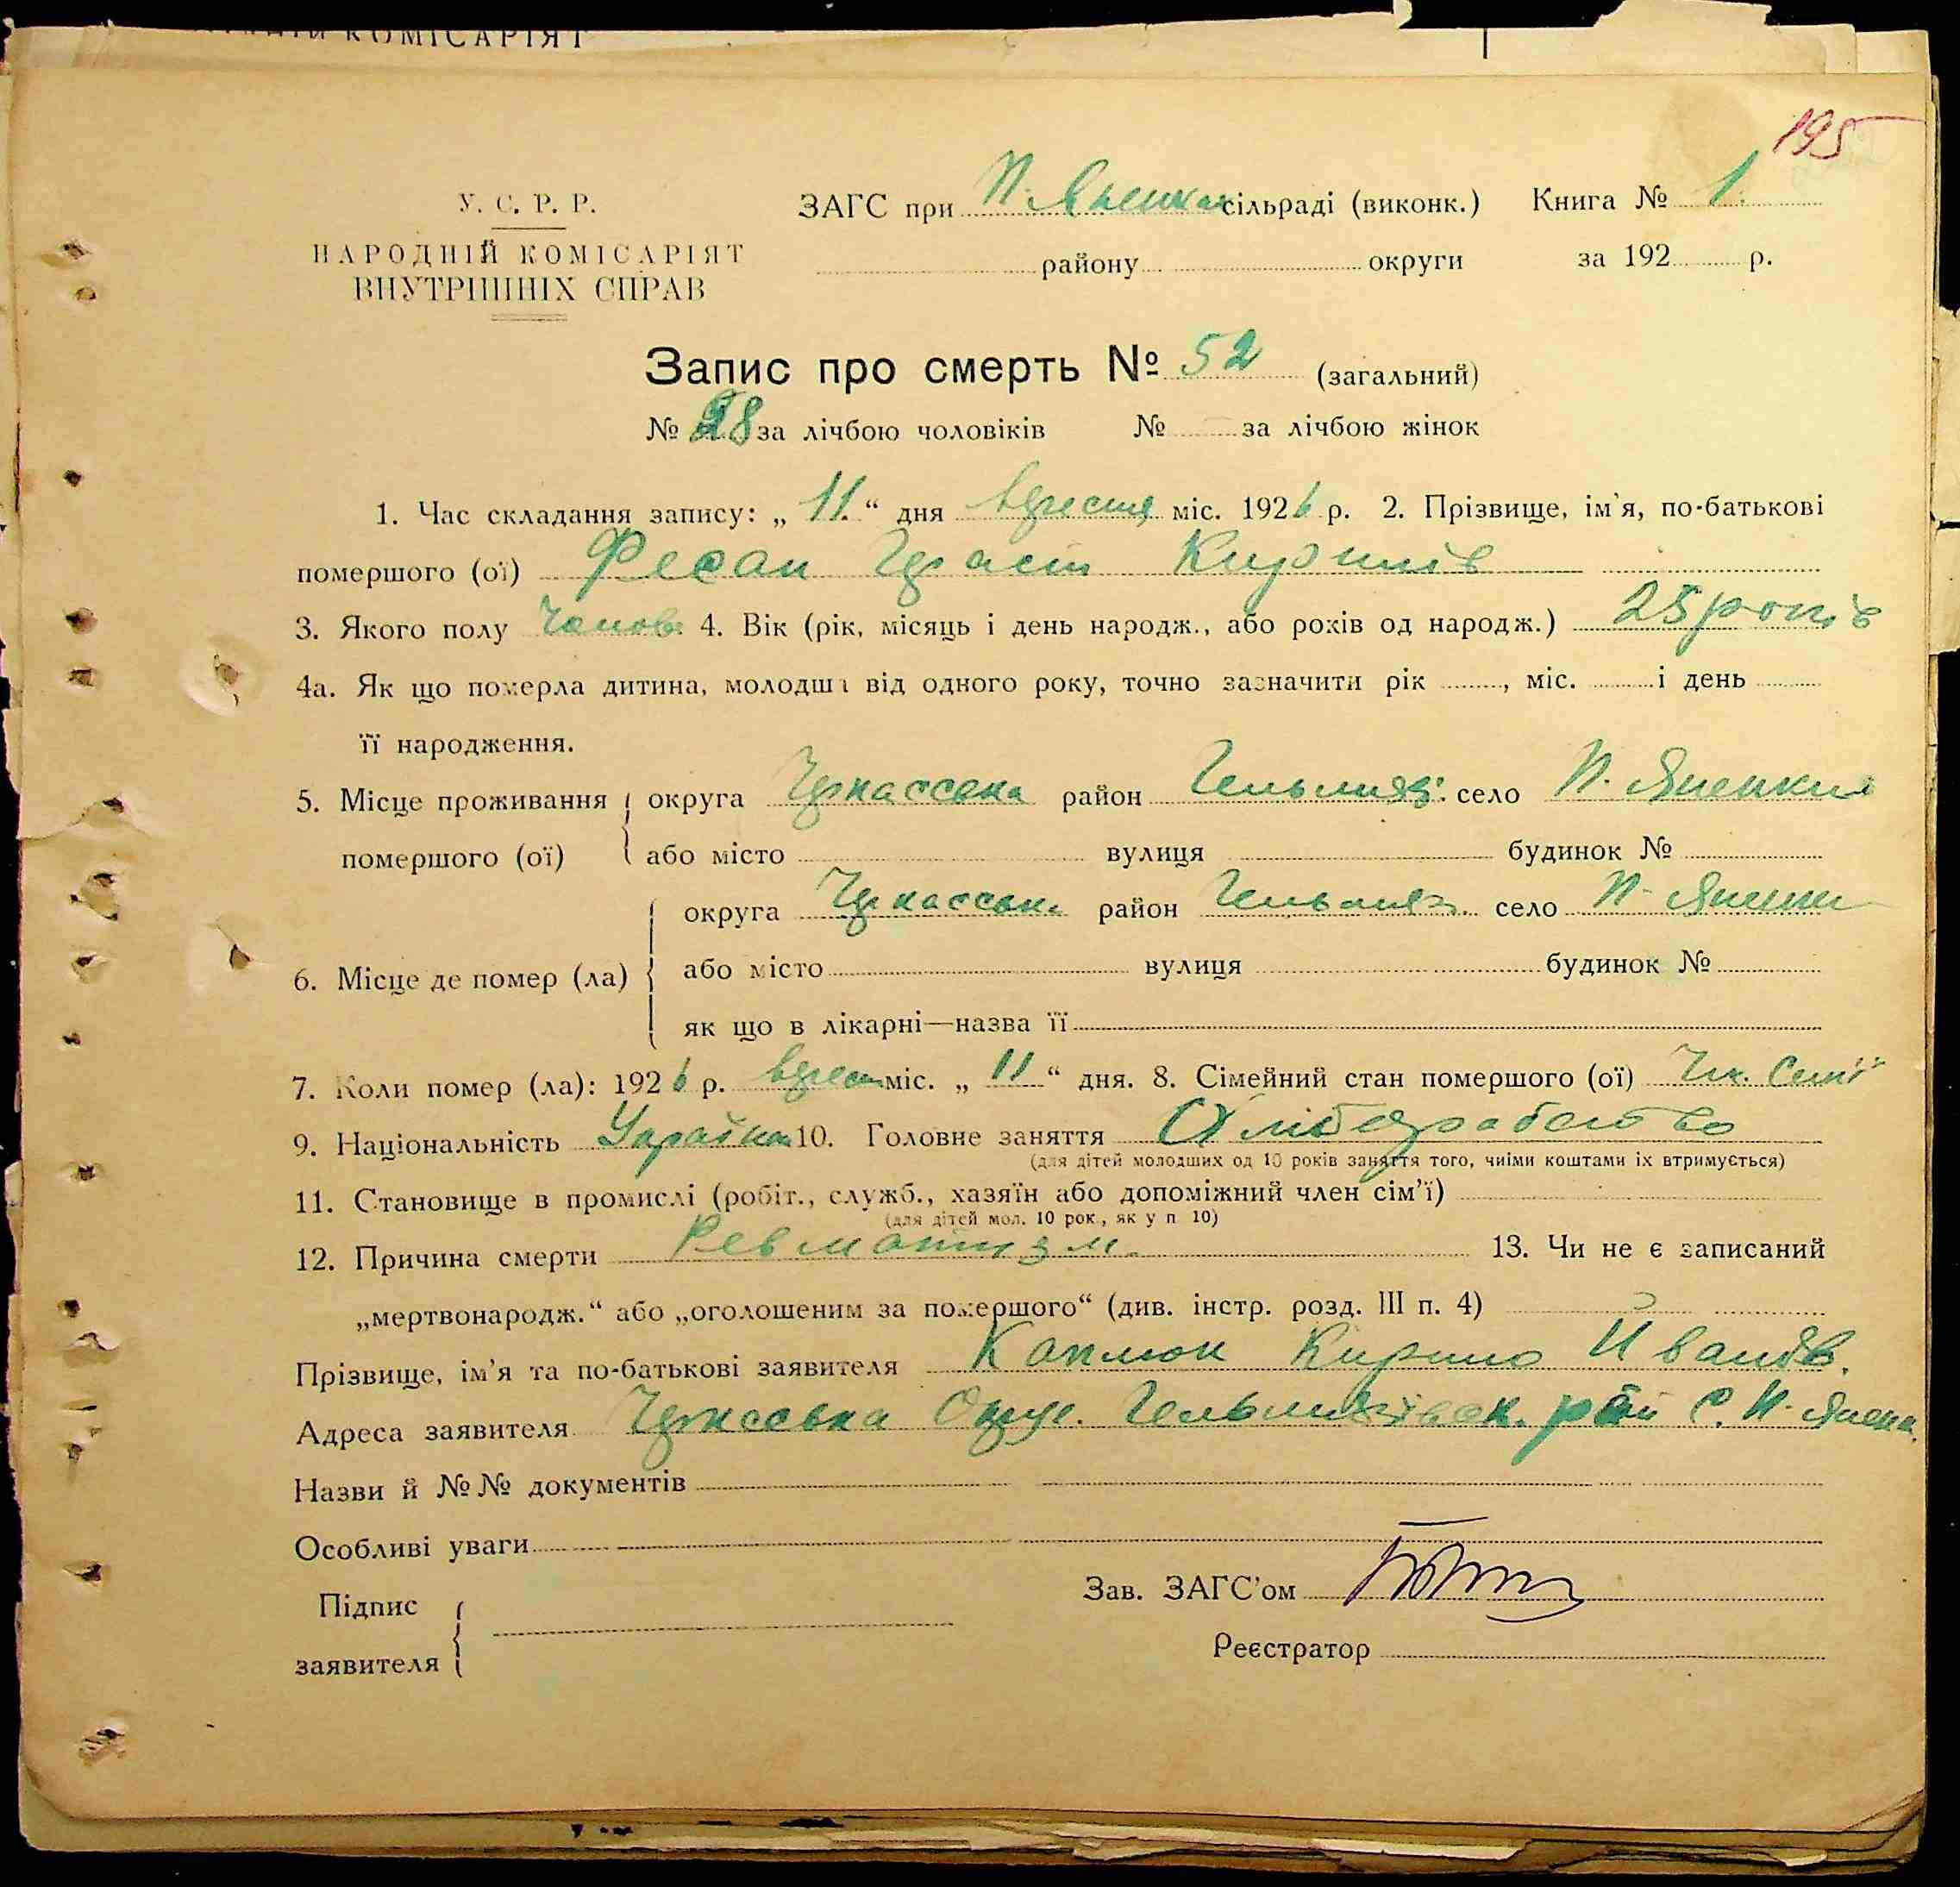 КОМІСАРІЯТ
195
У. С. Р. Р.
ЗАГС при П. Яненках сільраді (виконк.) Книга № 1.
НАРОДНІЙ КОМІСАРІЯТ
району округи за 192 р.
ВНУТРІШНІХ СПРАВ
Запис про смерть № 52 (загальний)
№ 28 за лічбою чоловіків № за лічбою жінок
1. Час складання запису: „ 11. “ дня вересня міс. 1926 р. 2. Прізвище, ім'я, по-батькові
помершого (ої) Фесан Кирилів
3. Якого полу Чолов. 4. Вік (рік, місяць і день народж., або років од народж.) 25 років
4а. Як що померла дитина, молодша від одного року, точно зазначити рік , міс. і день
її народження.
5. Місце проживання округа Черкасська район Гельмяз. село П. Яненки
помершого (ої) або місто вулиця будинок №
округа Черкасськ. район Гельмяз. село П. Яненки
6. Місце де помер (ла) або місто вулиця будинок №
як що в лікарні—назва її
7. Коли помер (ла): 1926 р. верес. міс. „ 11 “ дня. 8. Сімейний стан помершого (ої) Чл. Семї
9. Національність 10. Головне заняття Хліборобство
(для дітей молодших од 10 років заняття того, чиїми коштами їх втримується)
11. Становище в промислі (робіт., служб., хазяїн або допоміжний член сім'ї)
(для дітей мол. 10 рок., як у п 10)
12. Причина смерти Ревматизм. 13. Чи не є записаний
„мертвонародж.“ або „оголошеним за помершого“ (див. інстр. розд. III п. 4)
Прізвище, ім'я та по-батькові заявителя Кирило Иванов.
Адреса заявителя Черкасська Округ. Гельмязівськ. рай С. П. Яненк.
Назви й №№ документів
Особливі уваги
Зав. ЗАГС'ом
Підпис
Реєстратор
заявителя